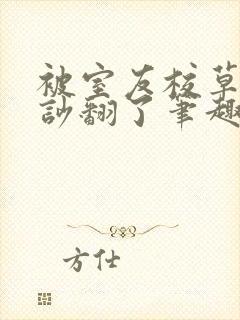 被室友校草
訬翻了笔趣
方仕